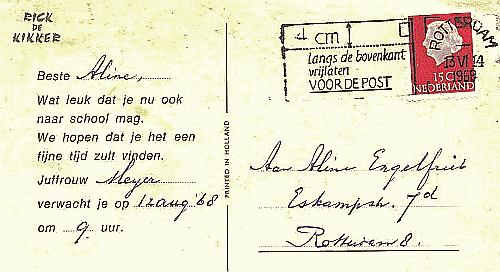 RICK
DE
KIKKER
Beste Aline,
Wat leuk dat je nu ook
naar school mag.
We hopen dat je het een
fijne tijd zult vinden.
Juffrouw Meyer
verwacht je op 12 aug '68
om 9 uur.
PRINTED IN HOLLAND
4 cm
langs de bovenkant
vrijlaten
VOOR DE POST
ROTTERDAM
13 VI 14
1968
15 C
NEDERLAND
Aan Aline Engelfriet
Eskampstr. 7d
Rotterdam 8.